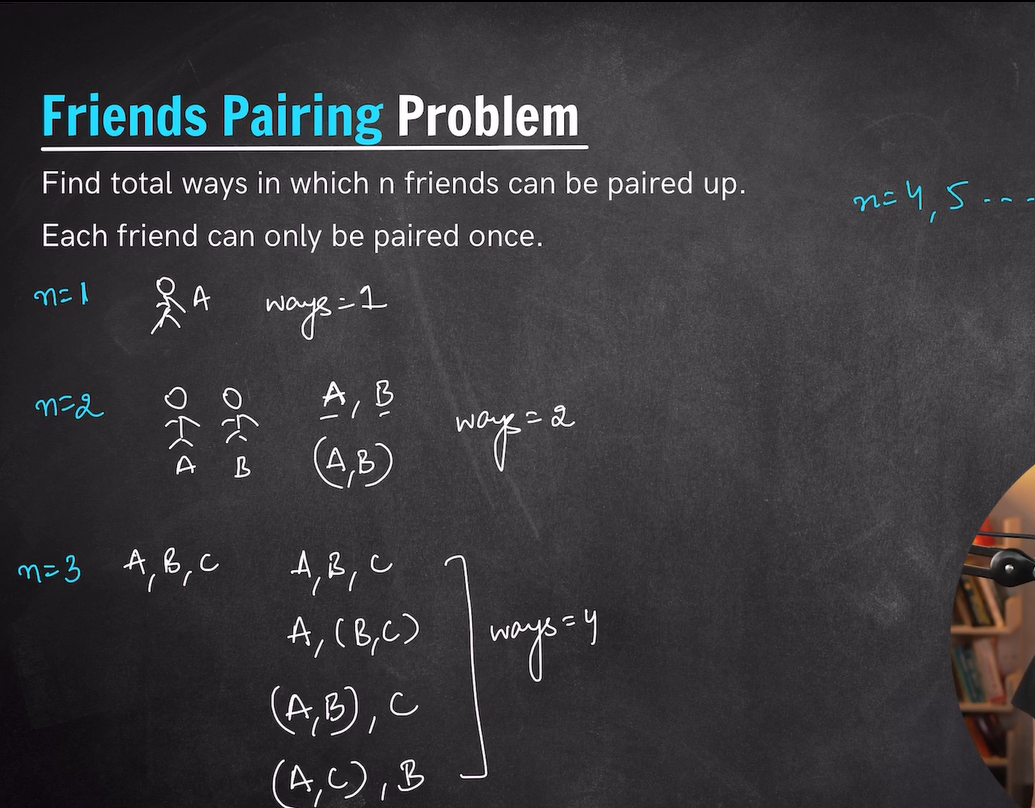 Friends Pairing Problem
Find total ways in which n friends can be paired up.
Each friend can only be paired once.
n=4, 5 ----
n=1 A ways=1
n=2 A, B
A B (A,B) ways=2
n=3 A, B, C A, B, C
A, (B,C) ways=4
(A,B), C
(A,C), B